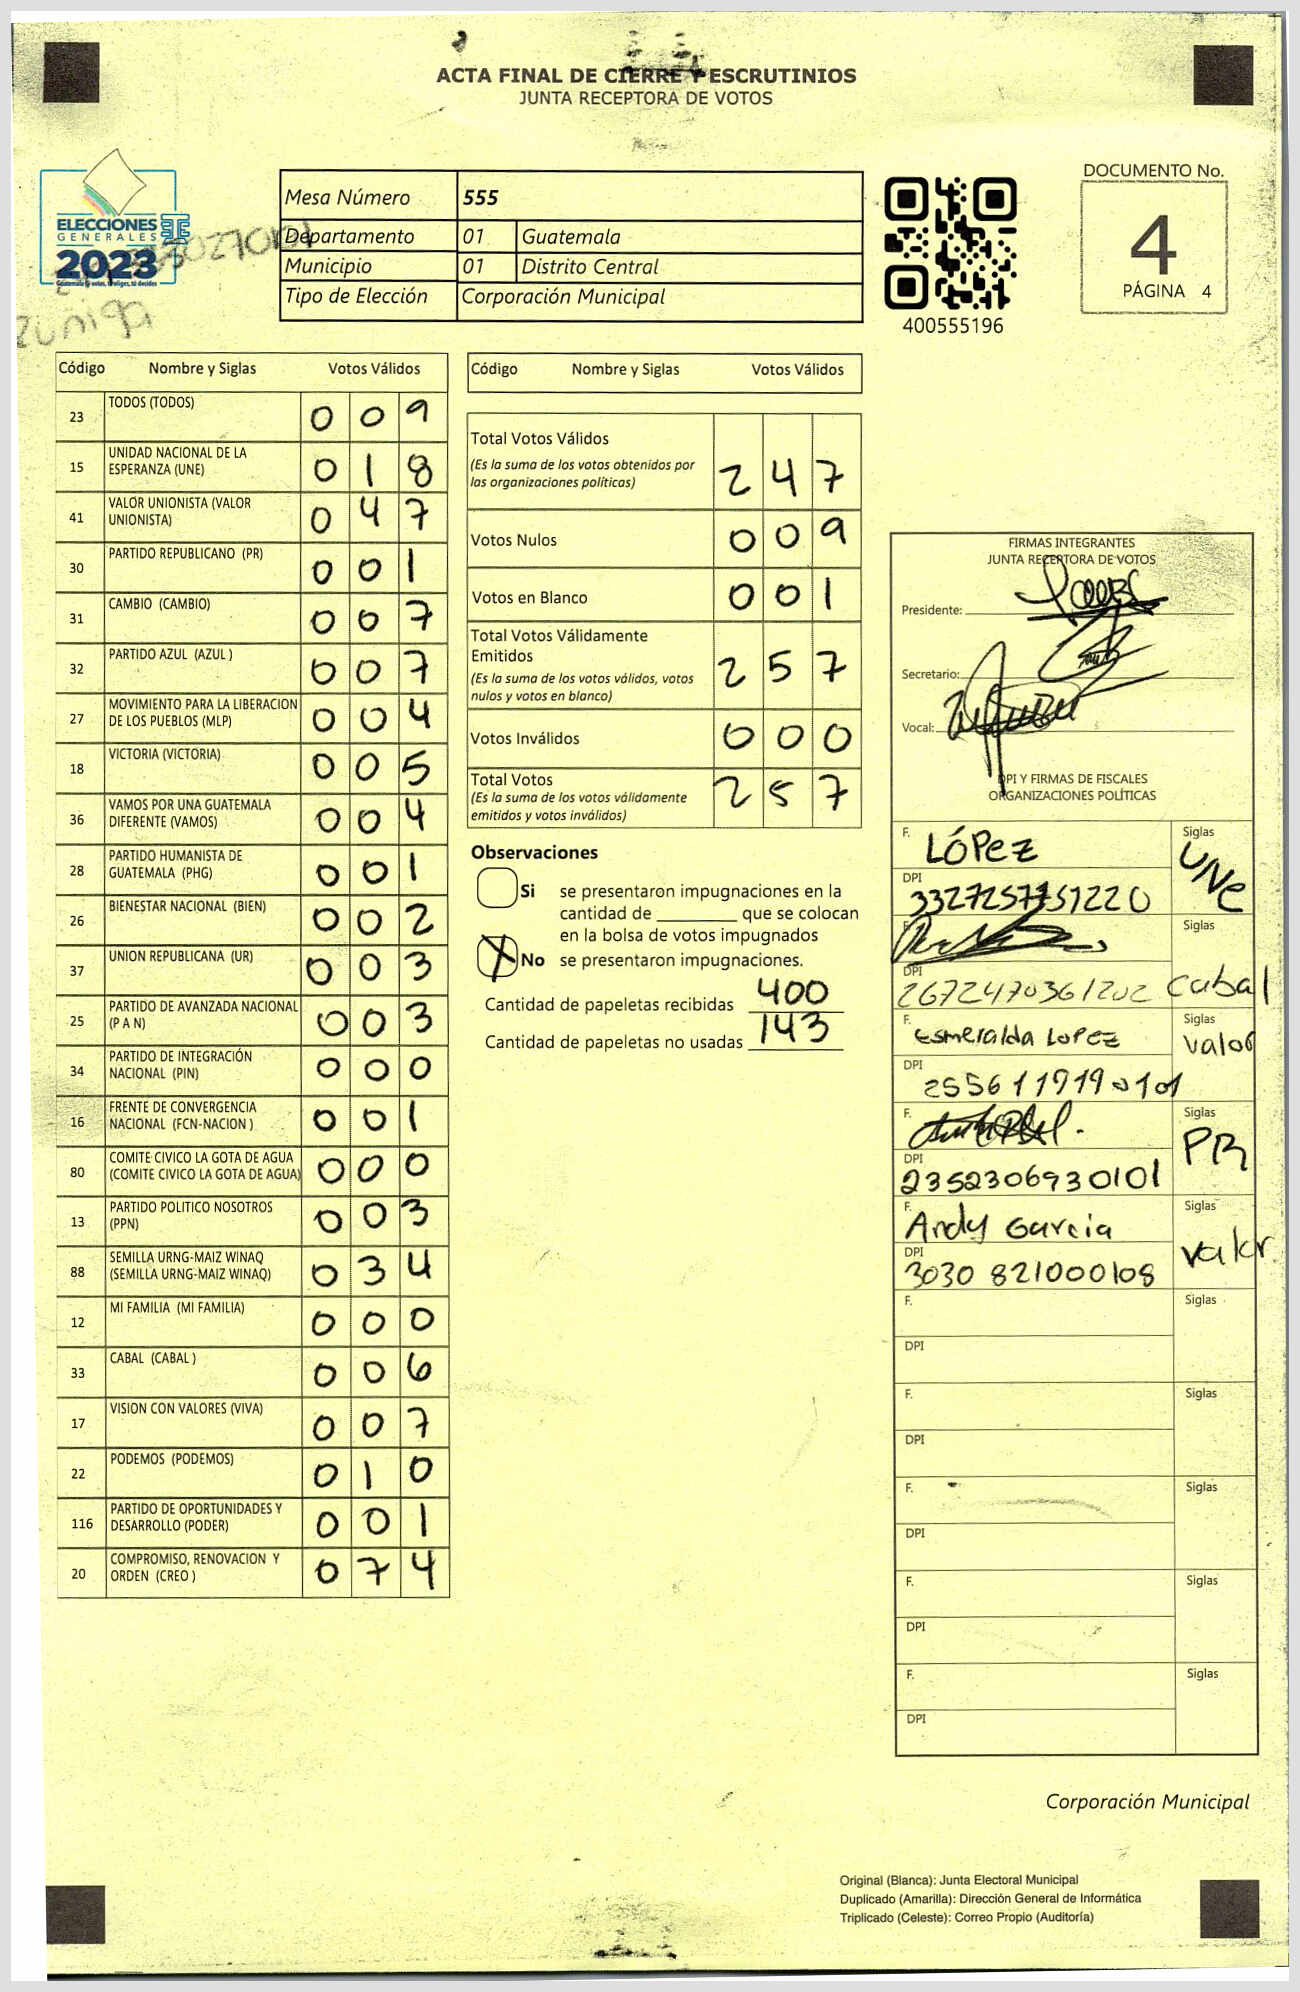 ACTA FINAL DE CIERRE Y ESCRUTINIOS
JUNTA RECEPTORA DE VOTOS
ELECCIONES
GENERALES
2023
Zuniga
Mesa Número 555
Departamento 01 Guatemala
Municipio 01 Distrito Central
Tipo de Elección Corporación Municipal
400555196
DOCUMENTO No.
4
PÁGINA 4
Código Nombre y Siglas Votos Válidos
23 TODOS (TODOS) 0 0 9
15 UNIDAD NACIONAL DE LA ESPERANZA (UNE) 0 1 8
41 VALOR UNIONISTA (VALOR UNIONISTA) 0 4 7
30 PARTIDO REPUBLICANO (PR) 0 0 1
31 CAMBIO (CAMBIO) 0 0 7
32 PARTIDO AZUL (AZUL ) 0 0 7
27 MOVIMIENTO PARA LA LIBERACION DE LOS PUEBLOS (MLP) 0 0 4
18 VICTORIA (VICTORIA) 0 0 5
36 VAMOS POR UNA GUATEMALA DIFERENTE (VAMOS) 0 0 4
28 PARTIDO HUMANISTA DE GUATEMALA (PHG) 0 0 1
26 BIENESTAR NACIONAL (BIEN) 0 0 2
37 UNION REPUBLICANA (UR) 0 0 3
25 PARTIDO DE AVANZADA NACIONAL (P A N) 0 0 3
34 PARTIDO DE INTEGRACIÓN NACIONAL (PIN) 0 0 0
16 FRENTE DE CONVERGENCIA NACIONAL (FCN-NACION ) 0 0 1
80 COMITE CIVICO LA GOTA DE AGUA (COMITE CIVICO LA GOTA DE AGUA) 0 0 0
13 PARTIDO POLITICO NOSOTROS (PPN) 0 0 3
88 SEMILLA URNG-MAIZ WINAQ (SEMILLA URNG-MAIZ WINAQ) 0 3 4
12 MI FAMILIA (MI FAMILIA) 0 0 0
33 CABAL (CABAL ) 0 0 6
17 VISION CON VALORES (VIVA) 0 0 7
22 PODEMOS (PODEMOS) 0 1 0
116 PARTIDO DE OPORTUNIDADES Y DESARROLLO (PODER) 0 0 1
20 COMPROMISO, RENOVACION Y ORDEN (CREO ) 0 7 4
Código Nombre y Siglas Votos Válidos
Total Votos Válidos
(Es la suma de los votos obtenidos por
las organizaciones políticas) 2 4 7
Votos Nulos 0 0 9
Votos en Blanco 0 0 1
Total Votos Válidamente
Emitidos 2 5 7
(Es la suma de los votos válidos, votos
nulos y votos en blanco)
Votos Inválidos 0 0 0
Total Votos 2 5 7
(Es la suma de los votos válidamente
emitidos y votos inválidos)
Observaciones
Si se presentaron impugnaciones en la
cantidad de ________ que se colocan
en la bolsa de votos impugnados
X No se presentaron impugnaciones.
Cantidad de papeletas recibidas 400
Cantidad de papeletas no usadas 143
FIRMAS INTEGRANTES
JUNTA RECEPTORA DE VOTOS
Presidente:
Secretario:
Vocal:
DPI Y FIRMAS DE FISCALES
ORGANIZACIONES POLÍTICAS
F. LÓPEZ Siglas UNE
DPI 3327257751220
F. Siglas Cabal
DPI 2672470361202
F. Esmeralda LOPEZ Siglas Valor
DPI 2556119190101
F. Siglas PR
DPI 2352306930101
F. Andy Garcia Siglas Valor
DPI 3030 821000108
F. Siglas
DPI
F. Siglas
DPI
F. Siglas
DPI
F. Siglas
DPI
F. Siglas
DPI
Corporación Municipal
Original (Blanca): Junta Electoral Municipal
Duplicado (Amarilla): Dirección General de Informática
Triplicado (Celeste): Correo Propio (Auditoría)